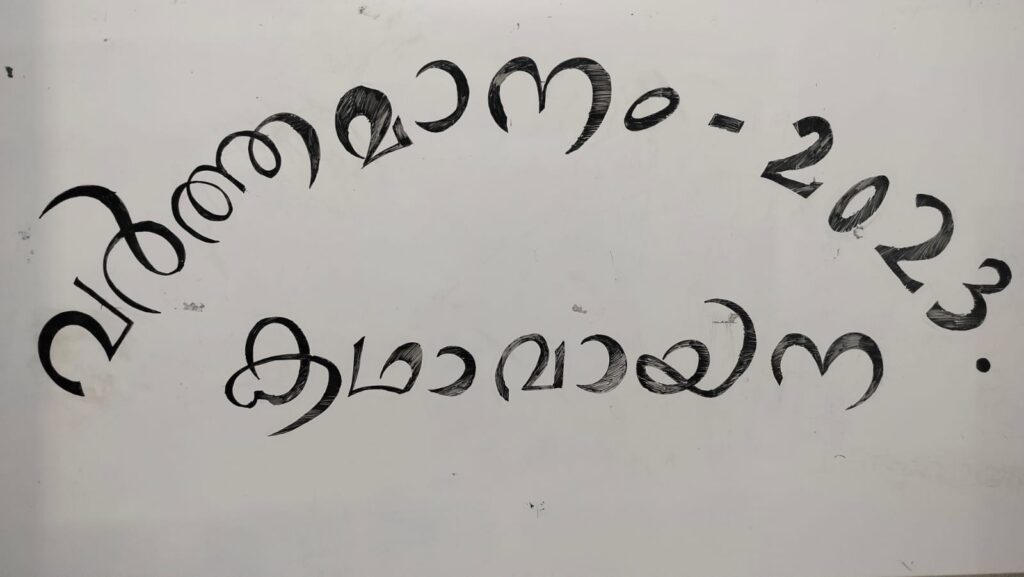 വർത്തമാനം - 2023.
കഥാവായന